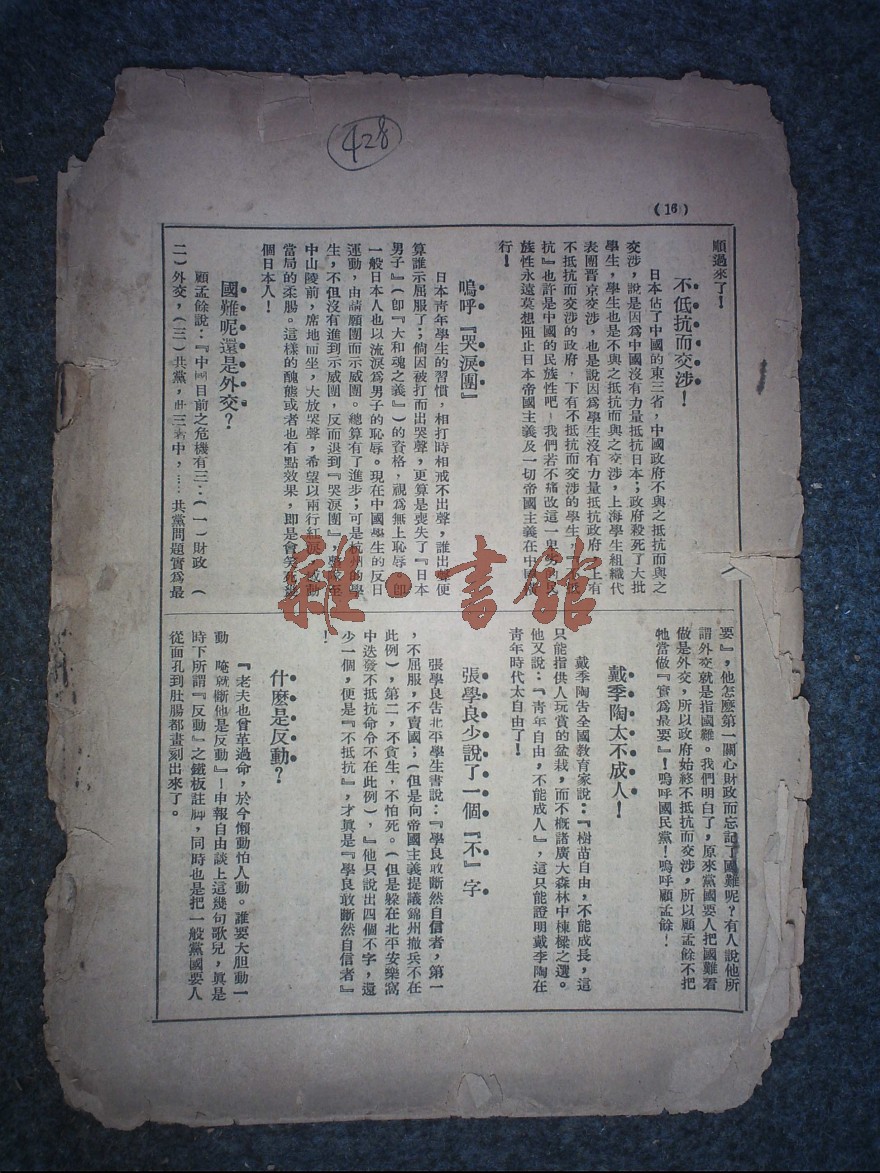 428
(16)
順過來了！
不低抗而交涉！
日本佔了中國的東三省，中國政府不與之抵抗而與之
交涉，說是因為中國沒有力量抵抗日本；政府殺死了大批
學生，學生也是不與之抵抗而與之交涉，上海學生組織代
表團晋京交涉，也是說因爲學生沒有力量抵抗政府
不抵抗而交涉的政府，下有不抵抗而交涉的學生，
抗』也許是中國的民族性吧！我們若不痛改這一
族性永遠莫想阻止日本帝國主義及一切帝國主義在中國
行！
嗚呼『哭淚團』
日本靑年學生的習慣，相打時相戒不出聲，誰出聲便
算誰示屈服了；倘因被打而出哭聲，更算是喪失了『日本
男子』(卽『大和魂之義』)的資格，視爲無上恥辱。卽
一般日本人也以流淚爲男子的恥辱。現在中國學生的反日
運動，由請願團而示威團。總算有了進步；可是杭州的學
生，不但沒有進到示威團，反而退到『哭淚團』，
中山陵前，席地而坐，大放哭聲，希望以兩行紅淚
當局的柔腸。這樣的醜態或者也有點效果，卽是會
個日本人！
國難呢還是外交？
顧孟餘說：『中國目前之危機有三：(一)財政(
二)外交，(三)共黨，此三者中，……共黨問題實爲最
要』，他怎麼第一關心財政而忘記了國難呢？有人說他所
謂外交就是指國難。我們明白了，原來黨國要人把國難看
做是外交，所以政府始終不抵抗而交涉，所以顧孟餘不把
牠當做『實爲最要』！嗚呼國民黨！嗚呼顧孟餘！
戴季陶太不成人！
戴季陶告全國敎育家說：『樹苗自由，不能成長，這
只能指供人玩賞的盆栽，而不概諸廣大森林中棟樑之選。
他又說：『靑年自由，不能成人』，這只能證明戴季陶在
靑年時代太自由了！
張學良少說了一個『不』字
張學良告北平學生書說：『學良敢斷然自信者，第一
，不屈服，不賣國；(但是向帝國主義提議錦州撤兵不在
此例)，第二，不貪生，不怕死。(但是躲在北平安樂窩
中迭發不抵抗命令不在此例)，』他只說出四個不字，還
少一個，便是『不抵抗』，才眞是『學良敢斷然自信者』
！
什麼是反動？
『老夫也曾革過命，於今懶動怕人動。誰要大胆動一
動　唵就斷他是反動』－申報自由談上這幾句歌兒，眞是
時下所謂『反動』之鐵板註脚，同時也是把一般黨國要人
從面孔到肚腸都畫刻出來了。
雜·書館